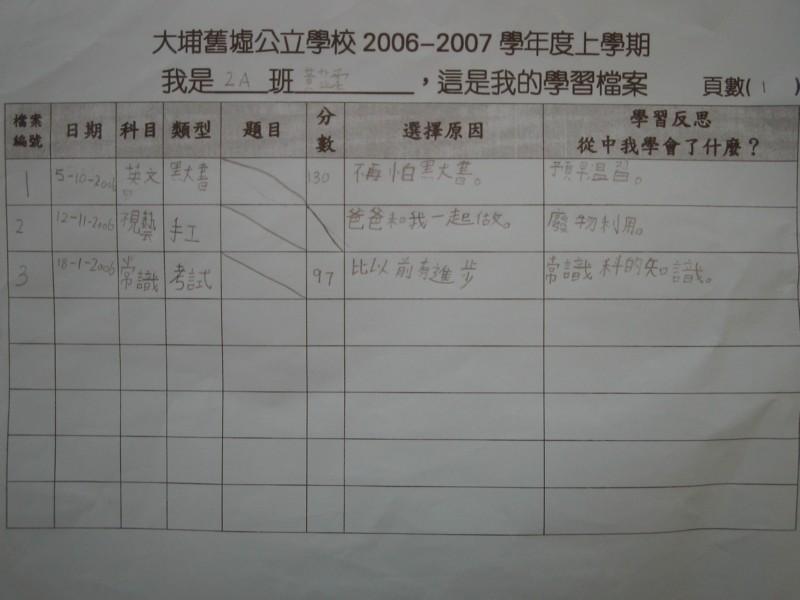 大埔舊墟公立學校 2006-2007 學年度上學期
我是 2A 班 黃，這是我的學習檔案 頁數( 1 )
檔案編號 日期 科目 類型 題目 分數 選擇原因 學習反思 從中我學會了什麼？
1 5-10-2006 英文 黑犬書 130 不再怕黑犬書。 預早温習。
2 12-11-2006 視藝 手工 爸爸和我一起做。 廢物利用。
3 18-1-2006 常識 考試 97 比以前有進步 常識科的知識。